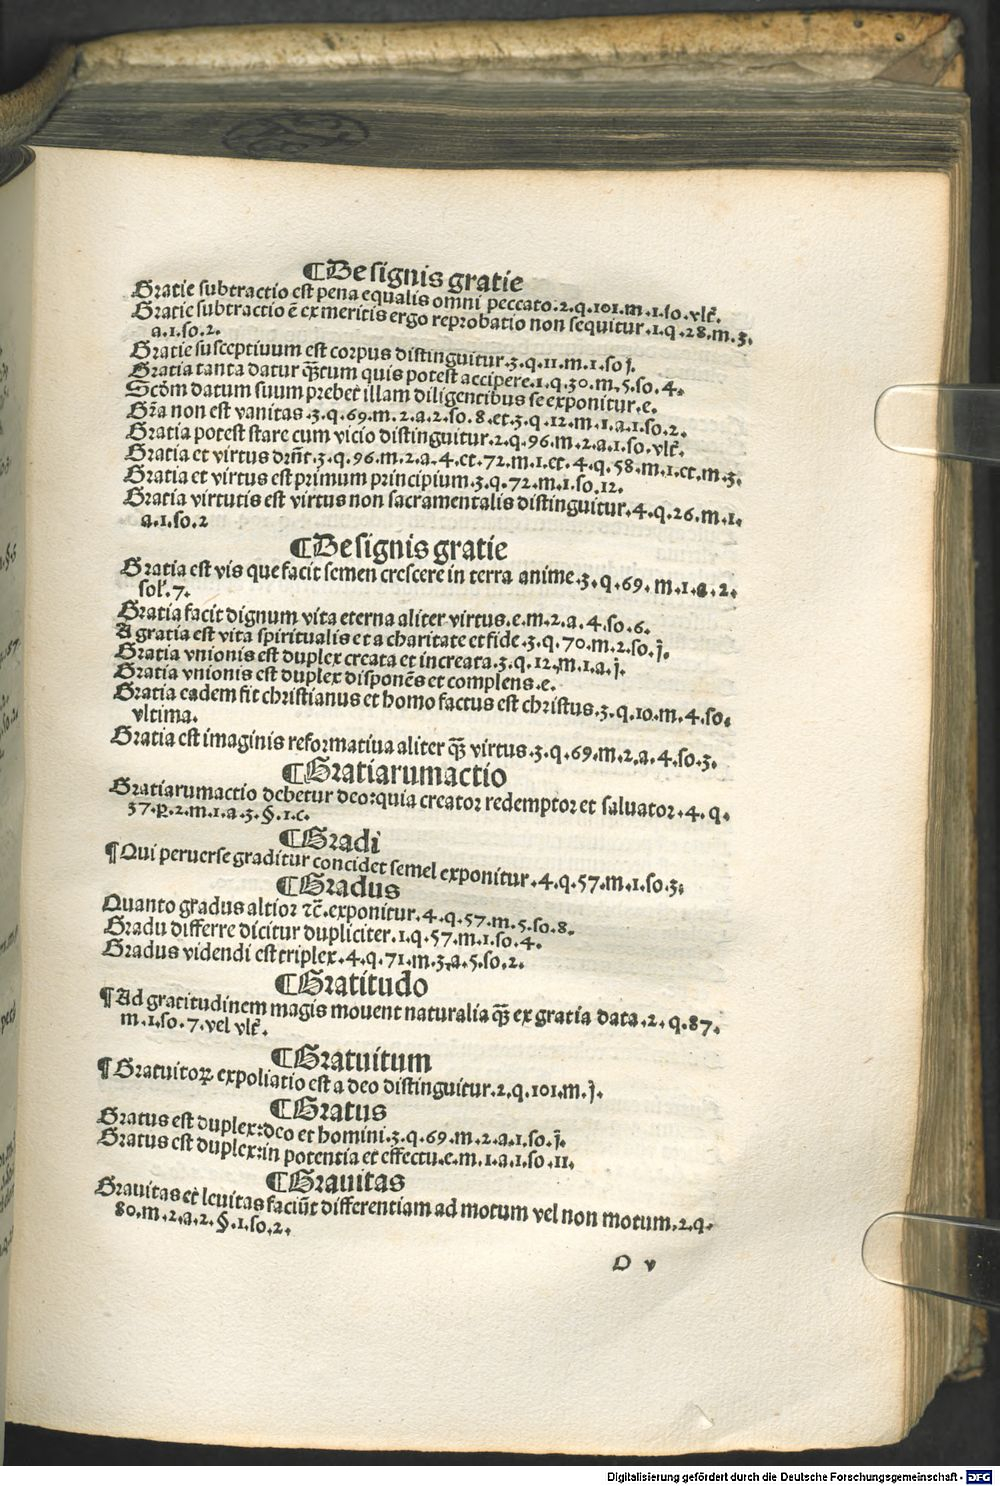 ¶De signis gratie
Gratie subtractio est pena equalis omni peccato.2.q.101.m.1.so.vlt̄.
Gratie subtractio ē ex meritis ergo reprobatio non sequitur.1.q.28.m.3.
a.1.so.2.
Gratie susceptiuum est corpus distinguitur.3.q.11.m.1.so j.
Gratia tanta datur q̄ꝫtum quis potest accipere.1.q.30.m.5.so.4.
Scōm datum suum prebet illam diligentibus se exponitur.e.
Gr̄a non est vanitas.3.q.69.m.2.a.2.so.8.et.3.q.12.m.1.a.1.so.2.
Gratia potest stare cum vicio distinguitur.2.q.96.m.2.a.1.so.vlt̄.
Gratia et virtus drn̄t.3.q.96.m.2.a.4.et.72.m.1.et.4.q.58.m.1.et.m.3.
Gratia et virtus est primum principium.3.q.72.m.1.so.12.
Gratia virtutis est virtus non sacramentalis distinguitur.4.q.26.m.1.
a.1.so.2
¶De signis gratie
Gratia est vis que facit semen crescere in terra anime.3.q.69.m.1.a.2.
sol̄.7.
Gratia facit dignum vita eterna aliter virtus.e.m.2.a.4.so.6.
A gratia est vita spiritualis et a charitate et fide.3.q.70.m.2.so.j.
Gratia vnionis est duplex creata et increata.3.q.12.m.1.a.j.
Gratia vnionis est duplex disponēs et complens.e.
Gratia eadem fit christianus et homo factus est christus.3.q.10.m.4.so.
vltima.
Gratia est imaginis reformatiua aliter q̄ꝫ virtus.3.q.69.m.2.a.4.so.3.
¶Gratiarumactio
Gratiarumactio debetur deo:quia creator redemptor et saluator.4.q.
37.p.2.m.1.a.3.§.1.c.
¶Gradi
¶Qui peruerse graditur concidet semel exponitur.4.q.57.m.1.so.3.
¶Gradus
Quanto gradus altior ⁊c̄.exponitur.4.q.57.m.5.so.8.
Gradu differre dicitur dupliciter.1.q.57.m.1.so.4.
Gradus videndi est triplex.4.q.71.m.3.a.5.so.2.
¶Gratitudo
¶Ad gratitudinem magis mouent naturalia q̄ꝫ ex gratia data.2.q.87.
m.1.so.7.vel vlt̄.
¶Gratuitum
¶Gratuitoꝝ expoliatio est a deo distinguitur.2.q.101.m.j.
¶Gratus
Gratus est duplex:deo et homini.3.q.69.m.2.a.1.so.j.
Gratus est duplex:in potentia et effectu.e.m.1.a.1.so.11.
¶Grauitas
Grauitas et leuitas faciūt differentiam ad motum vel non motum.2.q.
80.m.2.a.2.§.1.so.2.
D v
Digitalisierung gefördert durch die Deutsche Forschungsgemeinschaft - DFG